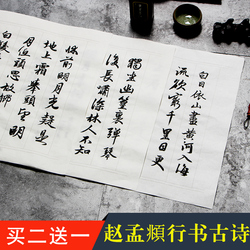 白日依山盡黄河入海
流欲窮千里目更
獨坐幽篁裏弹琴
復長嘯深林人不知
床前明月光疑是
地上霜舉頭望明
月低頭思故鄉
买二送一
赵孟頫行书古诗